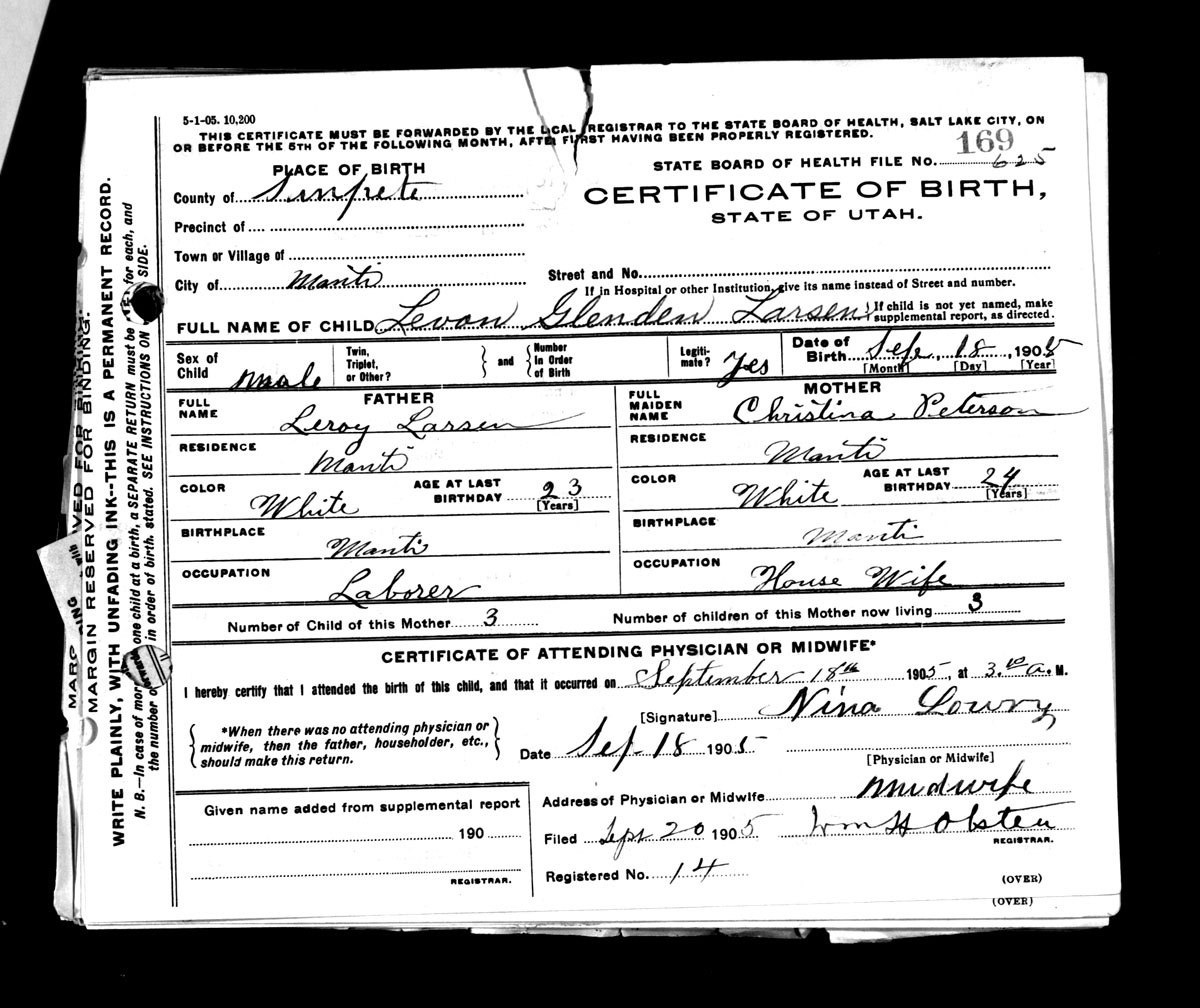 5-1-05. 10,200
THIS CERTIFICATE MUST BE FORWARDED BY THE LOCAL REGISTRAR TO THE STATE BOARD OF HEALTH, SALT LAKE CITY, ON
OR BEFORE THE 5TH OF THE FOLLOWING MONTH, AFTER FIRST HAVING BEEN PROPERLY REGISTERED.
169
PLACE OF BIRTH
STATE BOARD OF HEALTH FILE NO. 625
County of Sanpete
CERTIFICATE OF BIRTH,
STATE OF UTAH.
Precinct of
Town or Village of
City of Manti
Street and No.
If in Hospital or other Institution, give its name instead of Street and number.
FULL NAME OF CHILD Levon Glenden Larsen { If child is not yet named, make
supplemental report, as directed.
Sex of Child male
Twin, Triplet, or Other? } and { Number In Order of Birth
Legiti-mate? Yes
Date of Birth Sep. 18, 1905
[Month] [Day] [Year]
FATHER
FULL NAME Leroy Larsen
RESIDENCE Manti
COLOR White AGE AT LAST BIRTHDAY 23
[Years]
BIRTHPLACE Manti
OCCUPATION Laborer
MOTHER
FULL MAIDEN NAME Christina Peterson
RESIDENCE Manti
COLOR White AGE AT LAST BIRTHDAY 24
[Years]
BIRTHPLACE Manti
OCCUPATION House Wife
Number of Child of this Mother 3 Number of children of this Mother now living 3
CERTIFICATE OF ATTENDING PHYSICIAN OR MIDWIFE*
I hereby certify that I attended the birth of this child, and that it occurred on September 18th 1905, at 3.10 a. M.
[Signature] Nina Lowry
*When there was no attending physician or
midwife, then the father, householder, etc.,
should make this return.
Date Sep 18 1905
[Physician or Midwife]
Address of Physician or Midwife Midwife
Given name added from supplemental report
190
REGISTRAR.
Filed Sept 20 1905 Wm H Olsten
REGISTRAR.
Registered No. 14
(OVER)
(OVER)
MARGIN RESERVED FOR BINDING.
WRITE PLAINLY, WITH UNFADING INK--THIS IS A PERMANENT RECORD.
N. B.--In case of more one child at a birth, a SEPARATE RETURN must be for each, and
the number in order of birth. stated. SEE INSTRUCTIONS ON SIDE.